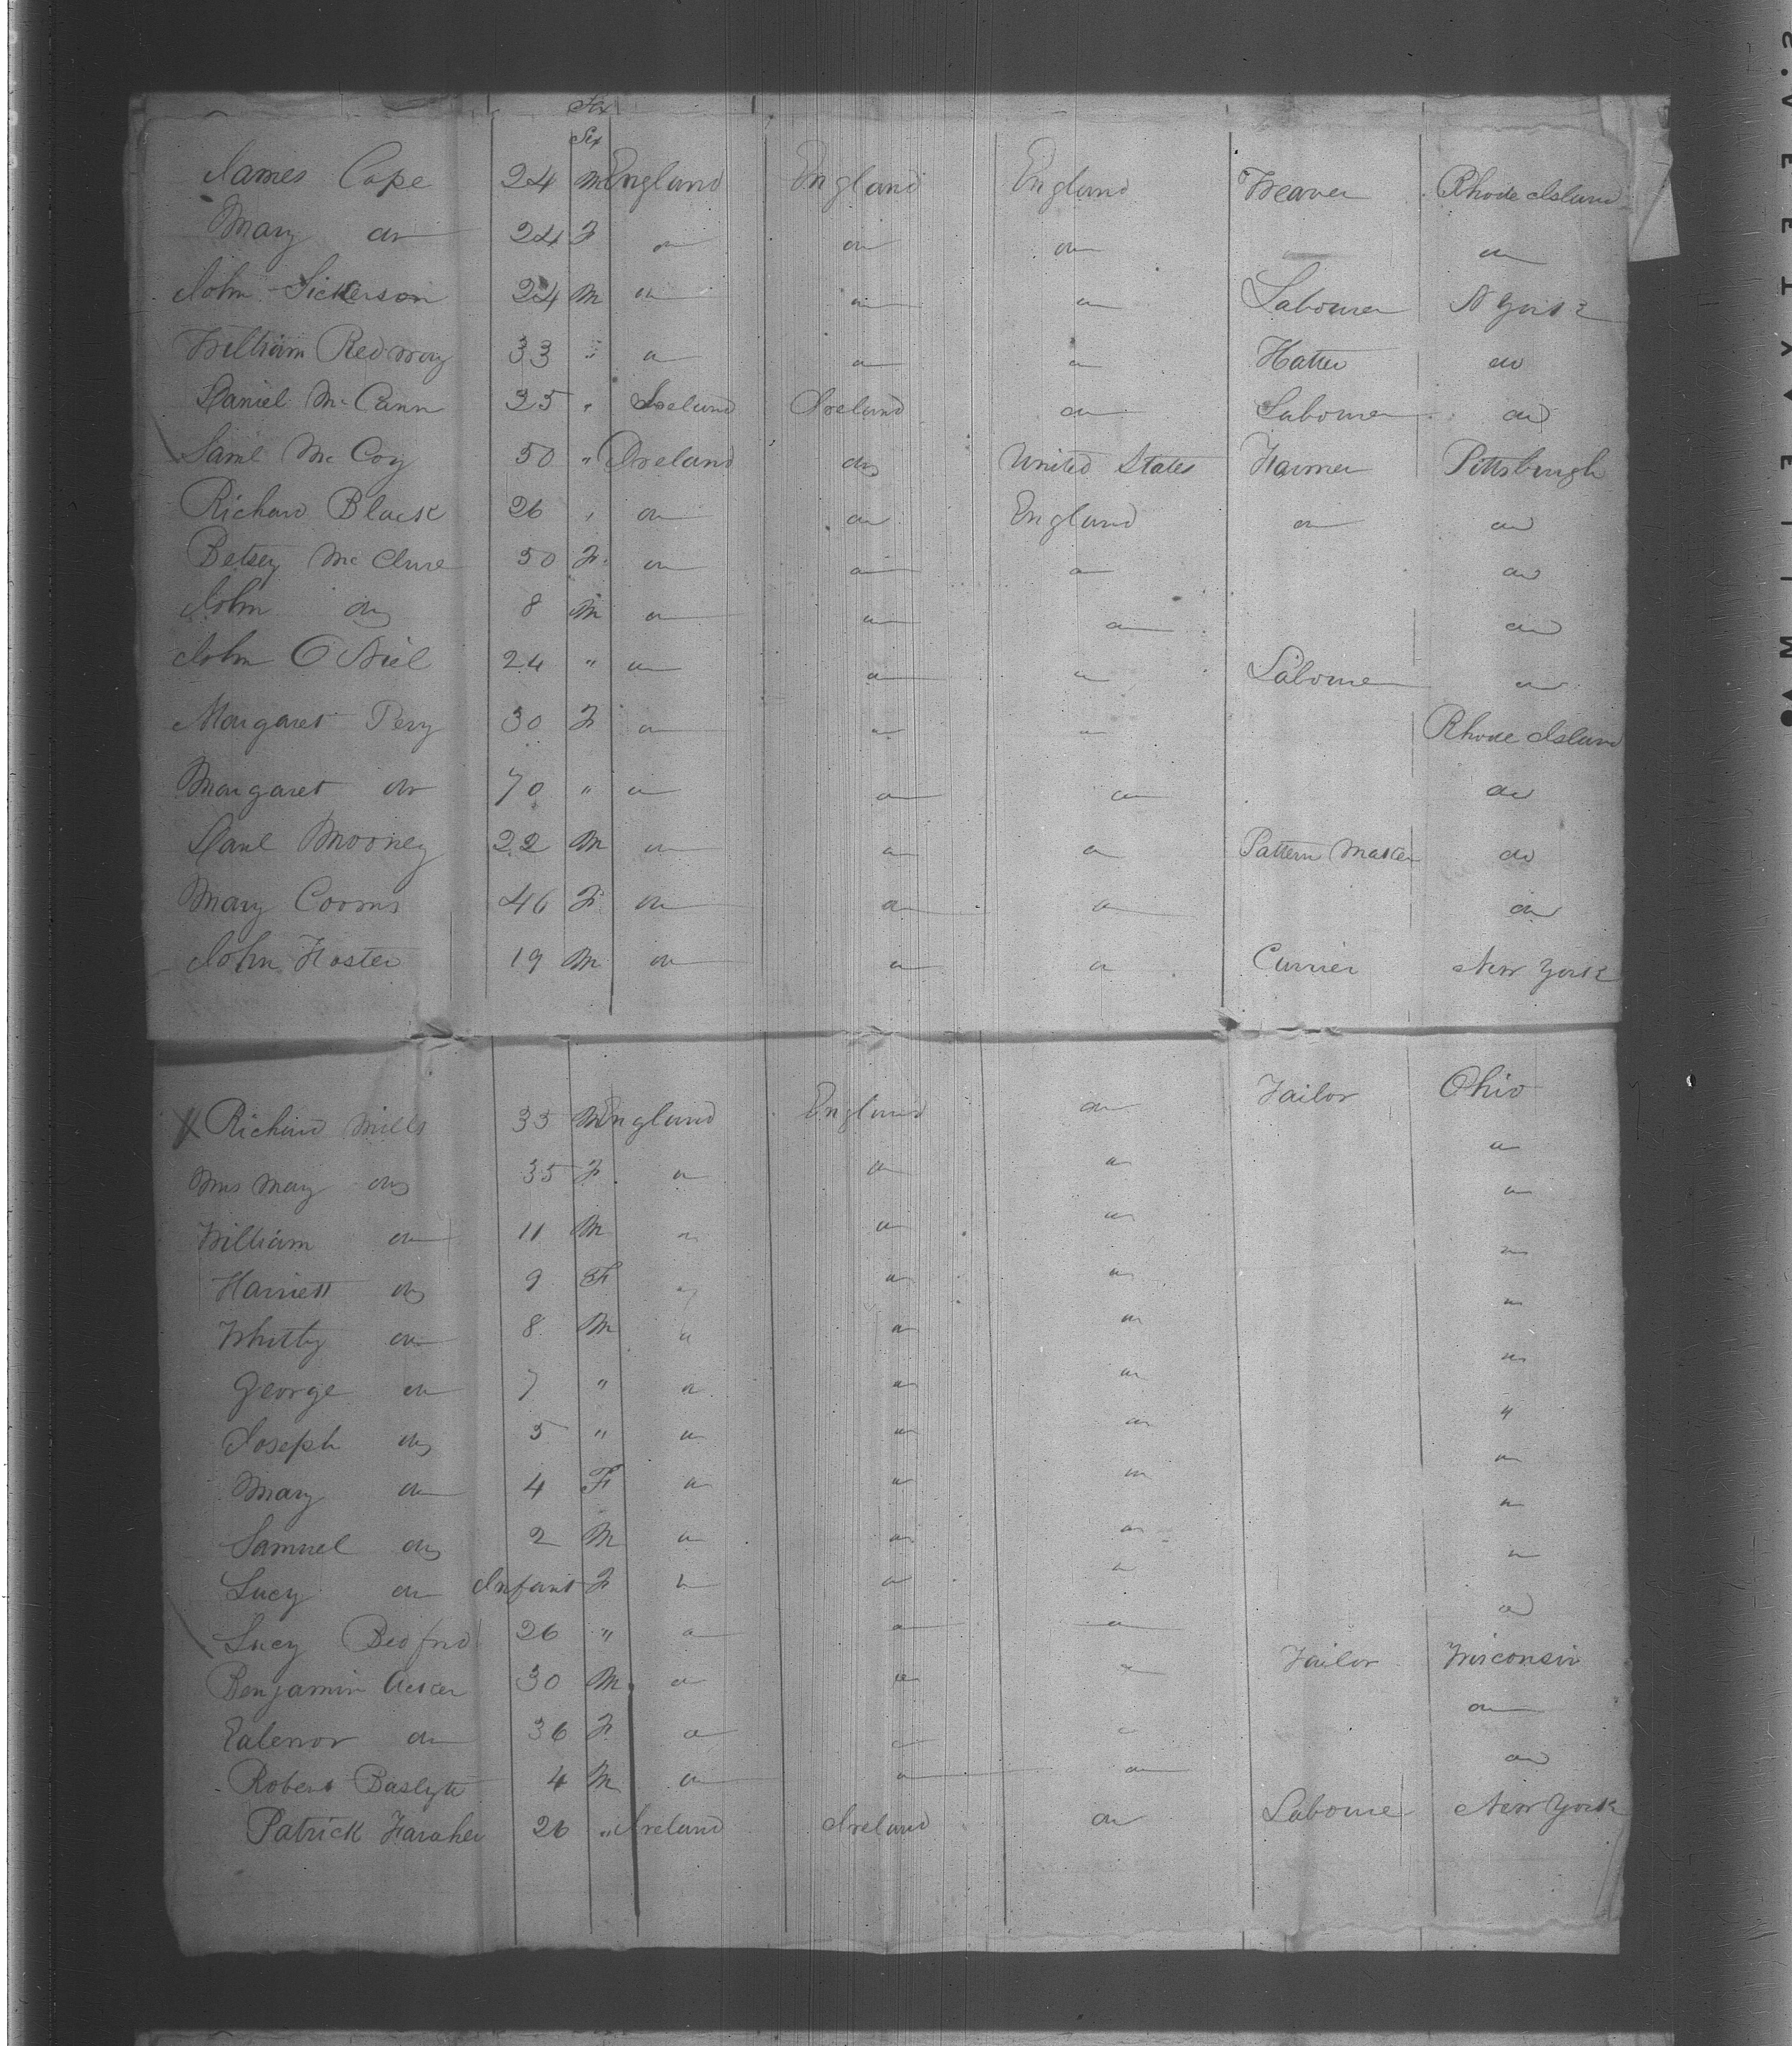 Sex
Sex
James Cape 24 M England England England Weaver Rhode Island
Mary do 24 F do do do do
John Sickerson 24 M do do do Labourer N York
William Redway 33 " do do do Hatter do
Daniel McCann 25 " Ireland Ireland do Labourer do
Saml McCoy 50 " Ireland do United States Farmer Pittsburgh
Richard Black 26 " do do England do do
Betsey McClure 50 F do do do do
John do 8 M do do do do
John O Niel 24 " do do do Labourer do
Margaret Pery 30 F do do do Rhode Island
Margaret do 70 " do do do do
Danl Mooney 22 M do do do Pattern Maker do
Mary Cooms 46 F do do do do
John Foster 19 M do do do Currier New York
Richard Mills 35 M England England do Tailor Ohio
Mrs Mary do 35 F do do do do
William do 11 M do do do do
Harriett do 9 F do do do do
Whitby do 8 M do do do do
George do 7 " do do do do
Joseph do 5 " do do do "
Mary do 4 F do do do do
Samuel do 2 M do do do do
Lucy do Infant F do do do do
Lucy Bedford 26 " do do do do
Benjamin 30 M do do do Tailor Wisconsin
Ealenor do 36 F do do do do
Robert 4 M do do do do
Patrick Faraher 26 " Ireland Ireland do Laboure New York